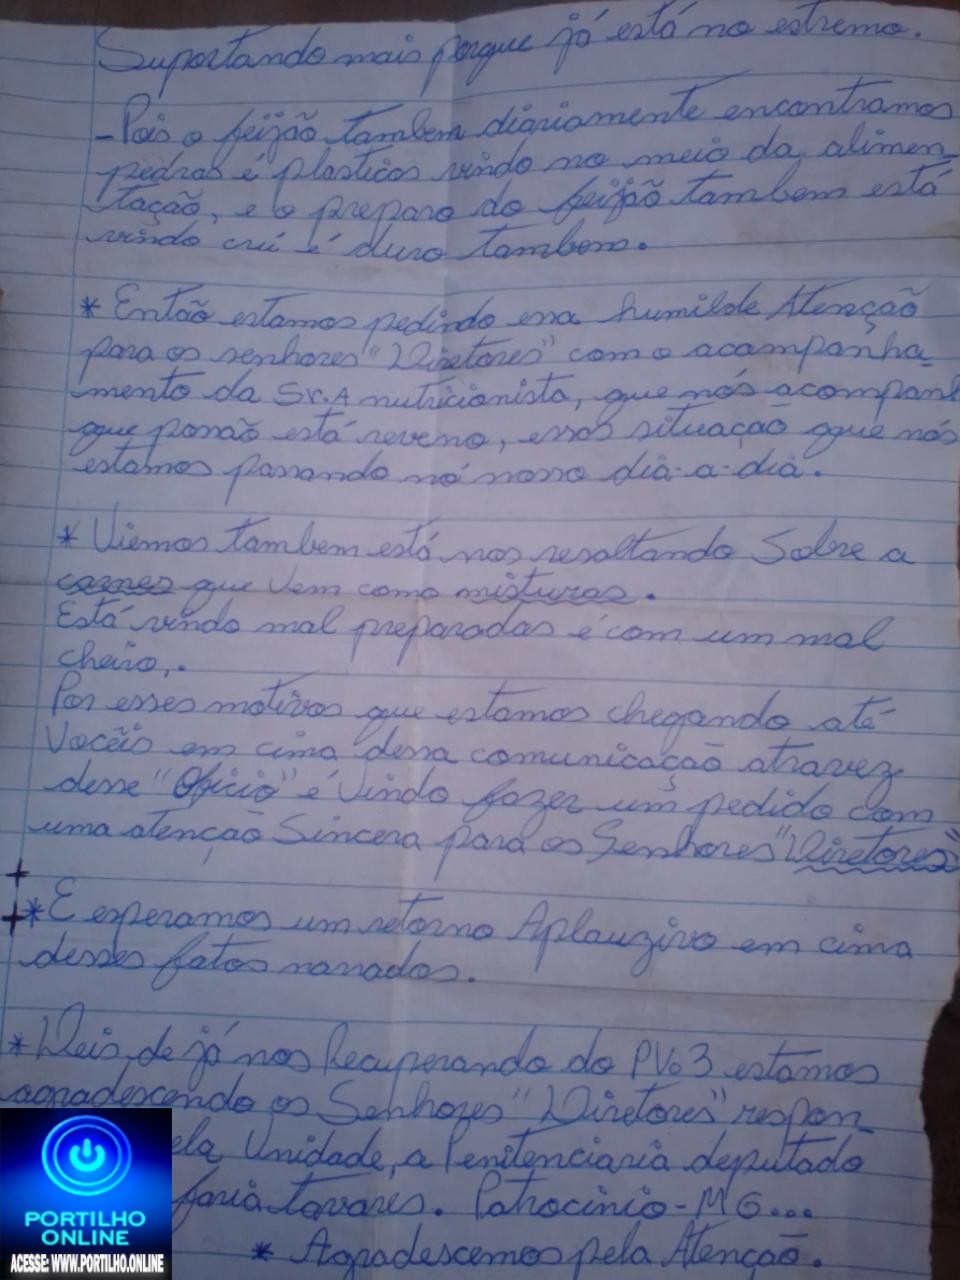 Suportando mais porque já está no estremo.
-Pois o feijão tambem diariamente encontramos
pedras é plasticos vindo no meio da, alimen
tação, e o preparo do feijão tambem está
vindo crú é duro tambem.
* Então estamos pedindo essa humilde Atenção
para os senhores "Diretores" com o acompanha
mento da Sr.A nutricionista, que nós acompanh
que possão está reveno, essas situação que nós
estamos passando nó nosso dia-a-dia.
* Viemos tambem está nos resaltando Sobre a
carnes que vem como misturas.
Está vindo mal preparadas é com um mal
cheiro,.
Por esses motivos que estamos chegando até
Vocêis em cima dessa comunicação atravez
desse "Oficio" é Vindo fazer um pedido com
uma atenção Sincera para os Senhores "Diretores"
* E esperamos um retorno Aplauzivo em cima
desses fatos narrados.
* Deis de já nos Recuperando do PV.3 estamos
agradescendo os Senhores "Diretores" respon
ela Unidade, a Penitenciaria deputado
faria tavares. Patrocinio-MG...
* Agradescemos pela Atenção.
PORTILHO
ONLINE
ACESSE: WWW.PORTILHO.ONLINE